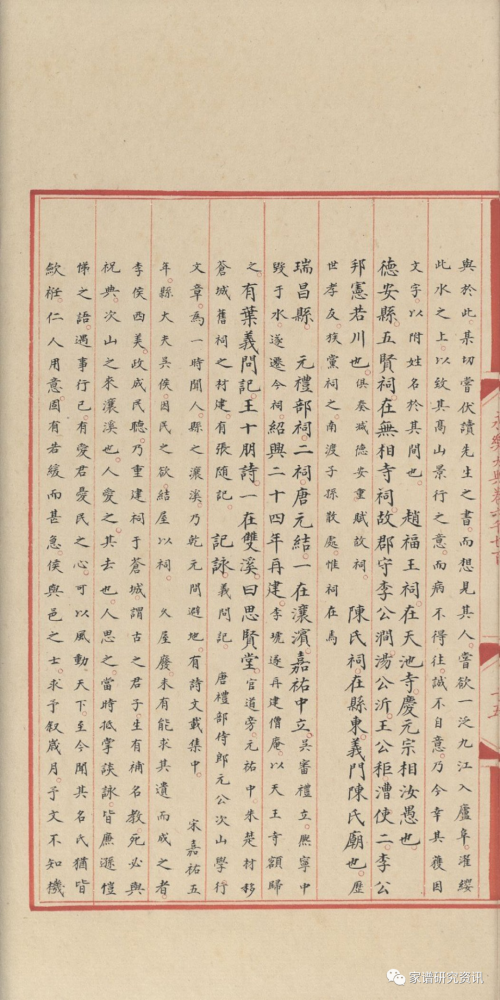 與於此某切嘗伏讀先生之書而想見其人嘗欲一泛九江入廬阜濯纓
此水之上以致其高山景行之意而病不得往誠不自意乃今幸其獲因
文字以附姓名於其間也 趙福王祠在天池寺慶元宗相汝愚也
德安縣五賢祠在無相寺祠故郡守李公澗湯公沂王公秬漕使二李公
邦憲若川也俱矣城德安重賦故祠 陳氏祠在縣東義門陳氏廟也歷
世孝友族黨祠之南渡子孫散處惟祠在焉
瑞昌縣 元禮部祠二祠唐元結一在瀼濱嘉祐中立吳審禮立熙寧中
毀于水遂遷今祠紹興二十四年再建李琥遂再建僧庵以天王寺額歸
之有葉義問記王十朋詩一在雙溪曰思賢堂官道旁元祐中朱楚材移
蒼城舊祠之材建有張隨記 記詠義問記 唐禮部侍郎元公次山學行
文章為一時聞人縣之瀼溪乃乾元間避地有詩文載集中 宋嘉祐五
年縣大夫吳侯因民之欲結屋以祠 火屋廢未有能求其遺而成之者
李侯西美政成民聽乃重建祠于蒼城謂古之君子生有補名教死必與
祝典次山之來瀼溪也人愛之其去也人思之當時抵掌談詠皆廉遜愷
悌之語遇事行己有愛君憂民之心可以風動天下至今聞其名氏猶皆
斂衽仁人用意固有若緩而甚急侯與邑之士求予叙歲月予文不知機
永樂大典卷
家谱研究资讯